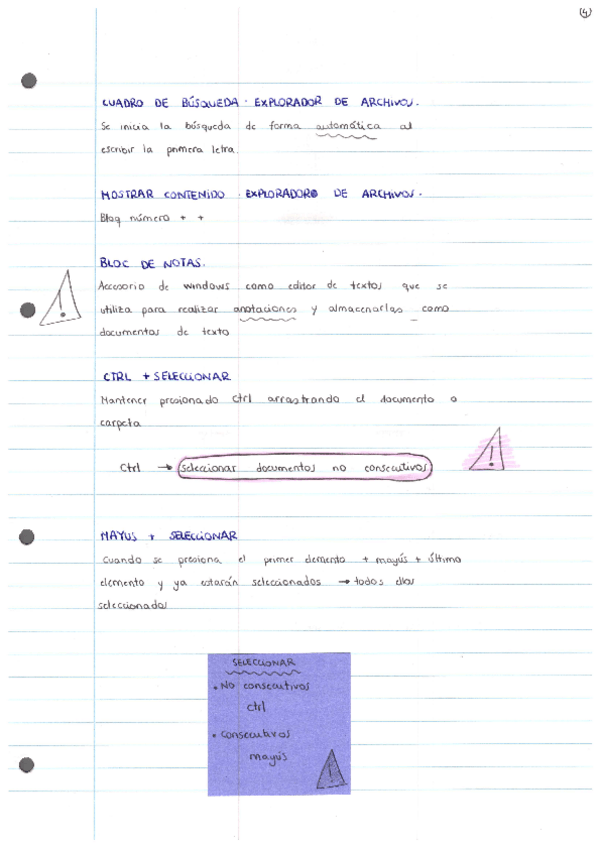 4
CUADRO DE BÚSQUEDA · EXPLORADOR DE ARCHIVOS.
Se inicia la búsqueda de forma automática al
escribir la primera letra.
MOSTRAR CONTENIDO · EXPLORADOR DE ARCHIVOS.
Bloq número + +
BLOC DE NOTAS.
Accesorio de windows como editor de textos que se
utiliza para realizar anotaciones y almacenarlas como
documentos de texto
!
CTRL + SELECCIONAR
Mantener presionado ctrl arrastrando el documento o
carpeta
Ctrl → seleccionar documentos no consecutivos
!
MAYUS + SELECCIONAR
Cuando se presiona el primer elemento + mayús + último
elemento y ya estarán seleccionados → todos ellos
seleccionados
SELECCIONAR
• No consecutivos
ctrl
• Consecutivos
mayús
!